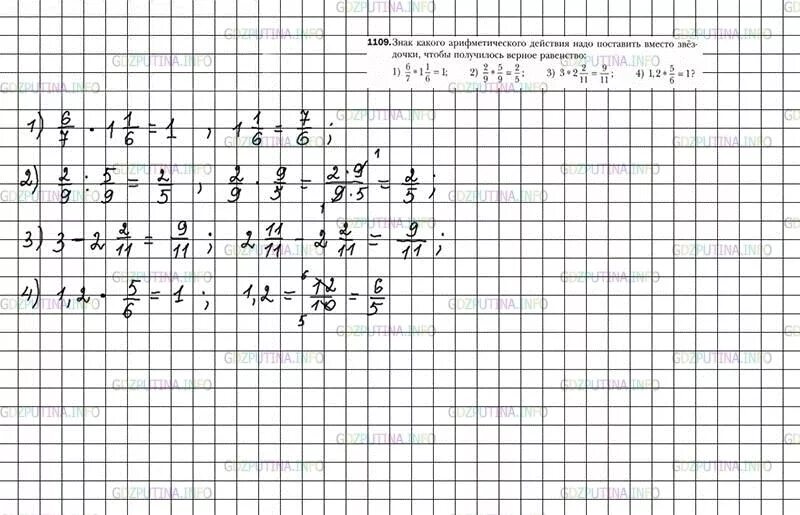 1109. Знак какого арифметического действия надо поставить вместо звёз-
дочки, чтобы получилось верное равенство:
1) 6/7 * 1 1/6 = 1; 2) 2/9 * 5/9 = 2/5; 3) 3 * 2 2/11 = 9/11; 4) 1,2 * 5/6 = 1?
1) 6/7 · 1 1/6 = 1 , 1 1/6 = 7/6 ;
2) 2/9 : 5/9 = 2/5 , 2/9 · 9/5 = 2·9/9·5 = 2/5 ;
3) 3 - 2 2/11 = 9/11 ; 2 11/11 - 2 2/11 = 9/11 ;
4) 1,2 · 5/6 = 1 ; 1,2 = 12/10 = 6/5
GDZPUTINA.INFO